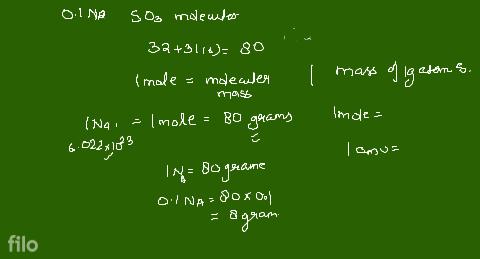 0.1 NA SO3 molecules
32+3(16)= 80
1 mole = molecular mass
1 NA = 1mole = 80 grams
6.022x10^23
1 NA = 80 grame
0.1 NA = 80 x 0.1
= 8 gram
| mass of 1g atom s.
1mole =
1 amu =
filo